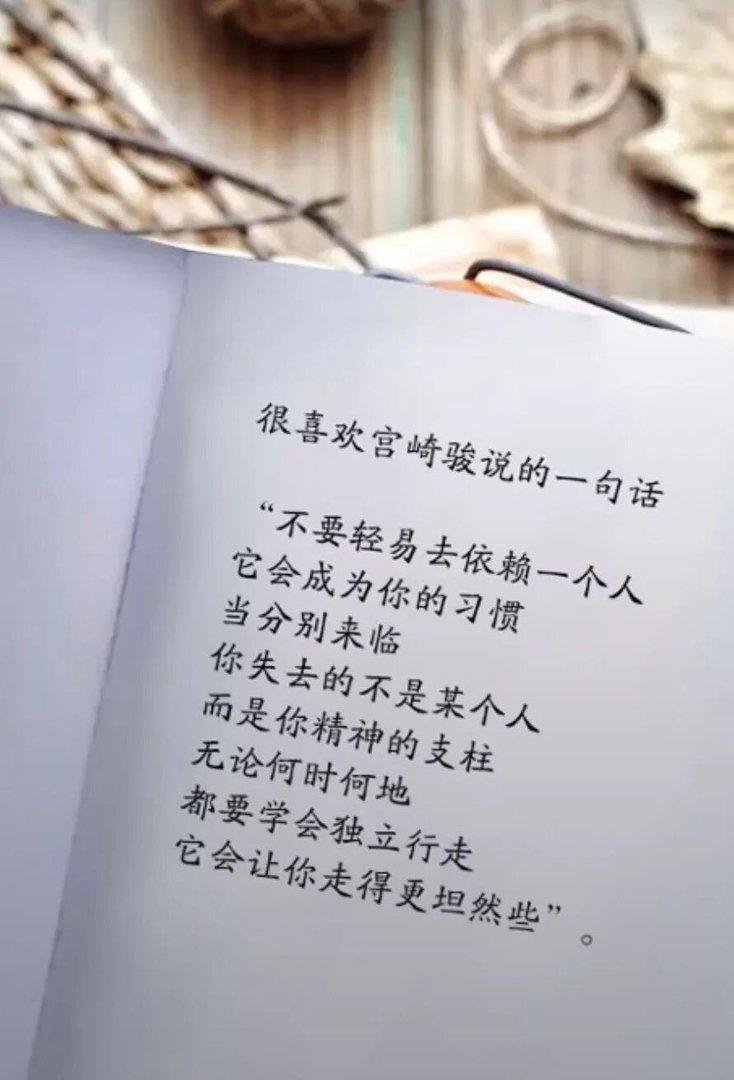 很喜欢宫崎骏说的一句话
“不要轻易去依赖一个人
它会成为你的习惯
当分别来临
你失去的不是某个人
而是你精神的支柱
无论何时何地
都要学会独立行走
它会让你走得更坦然些”。